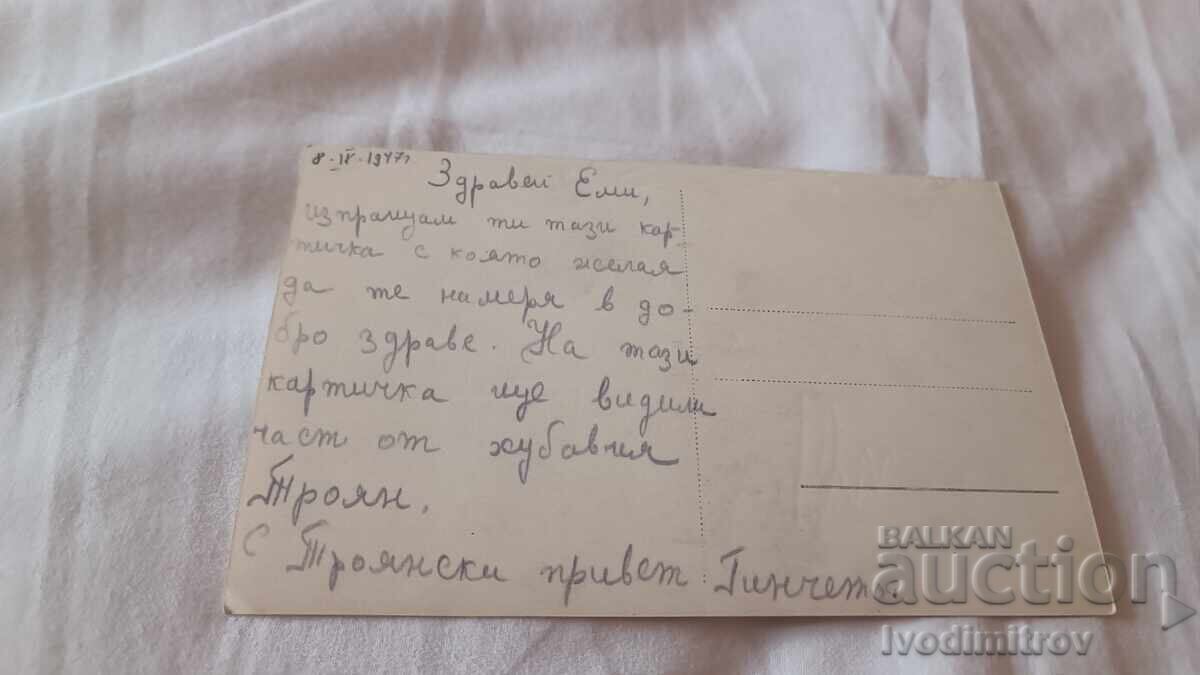 8-IV-1947г
Здравей Еми,
изпращам ти тази кар-
тичка с която желая
да те намеря в до-
бро здраве. На тази
картичка ще видиш
част от хубавия
Троян.
С Троянски привет Гинчето.
BALKAN
auction
Ivodimitrov